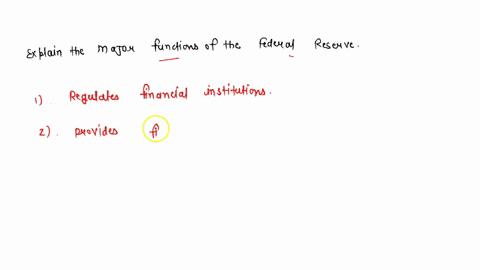 Explain the major functions of the Federal Reserve.
1) Regulates financial institutions.
2). provides fi